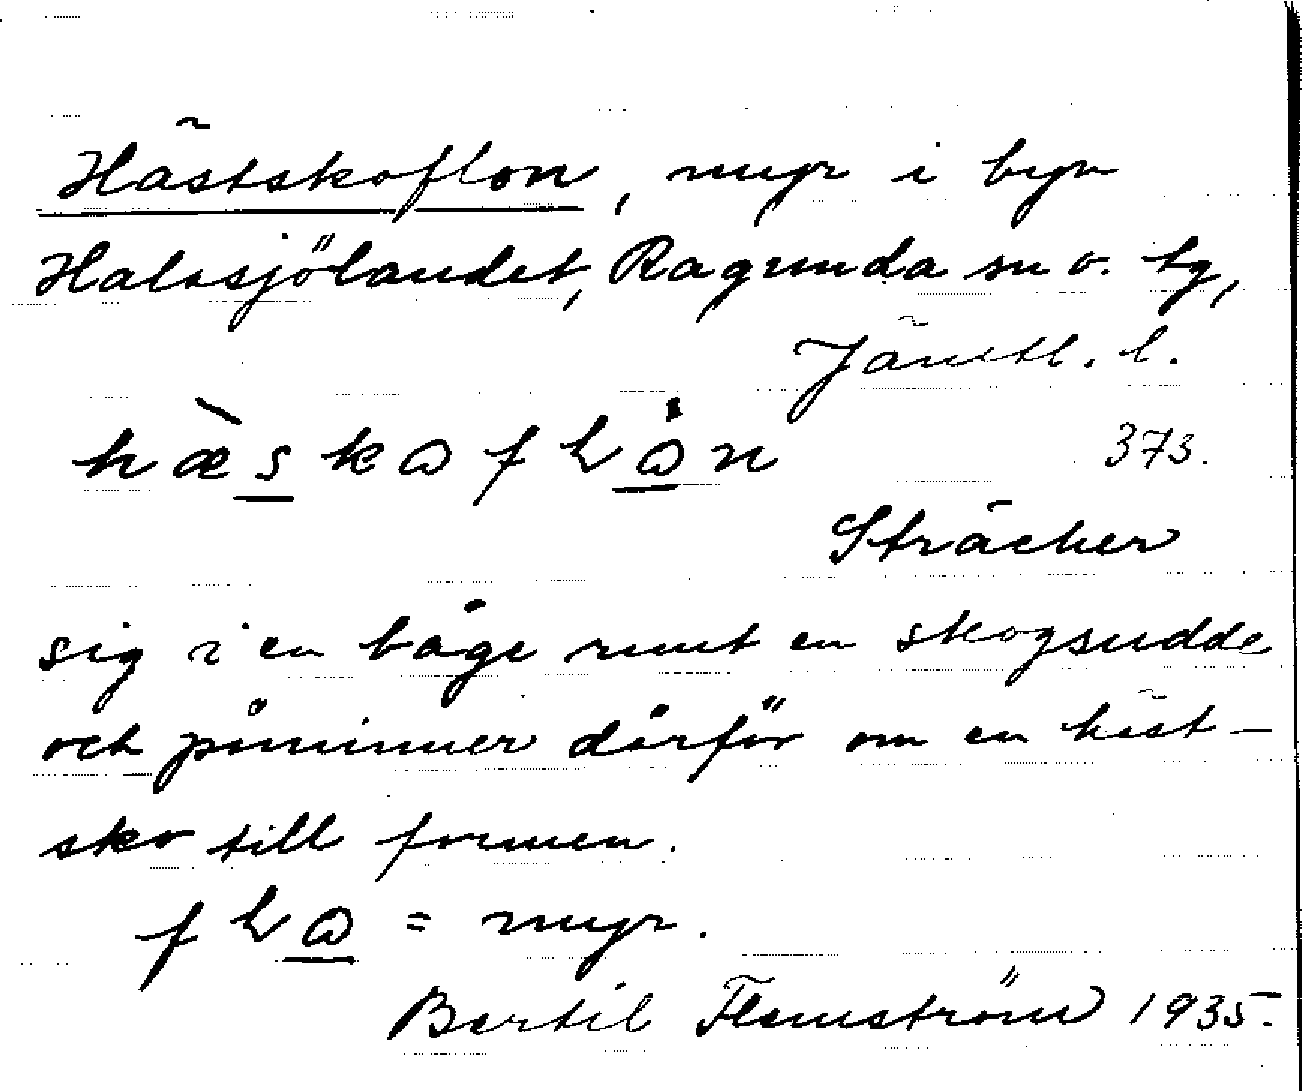 Hästskoflon, myr i byn
Halasjölandet, Ragunda sn o. tg,
Jämtl. l.
hæskɷflɷ̇n 373.
Sträcker
sig i en båge runt en skogsudde
och påminner därför om en häst-
sko till formen.
flɷ = myr.
Bertil Flemström 1935.